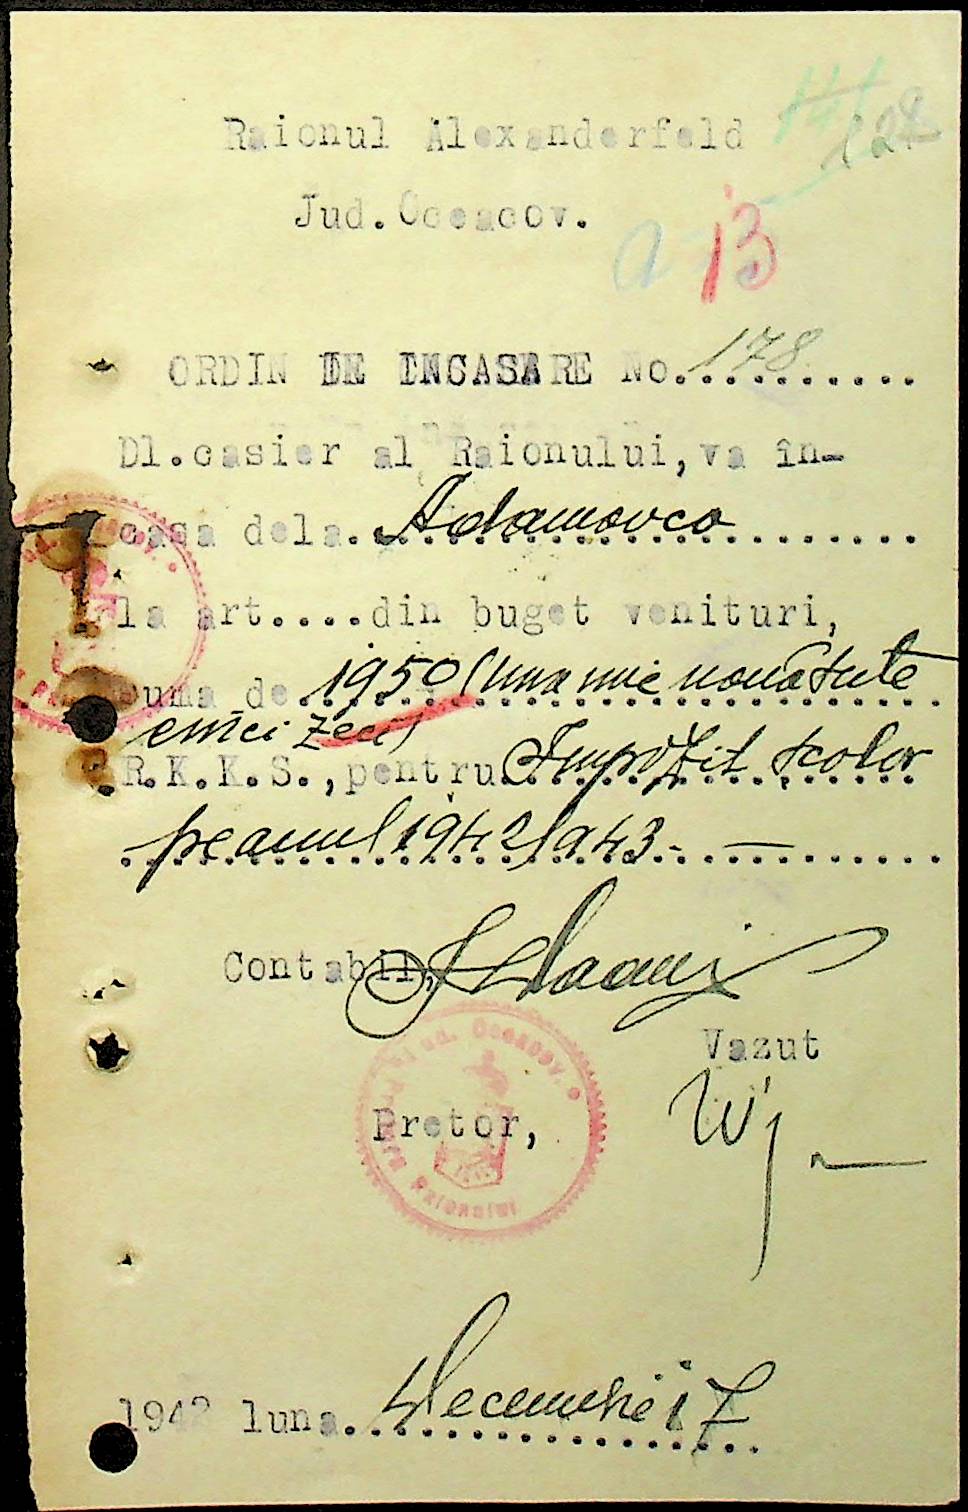 128
Raionul Alexanderfeld
Jud.Oceacov.
a 13
ORDIN DE INCASARE No.178..........
Dl.casier al Raionului,va în-
casa dela.Adamovca
la art....din buget venituri,
suma de 1950 (Una mie nouă sute
cinci zeci)
R.K.K.S.,pentru Impozit școlar
pe anul 1942/943.-
Contabil,
Vazut
Pretor,
Jud. Oceacov.
Raionului
1942 luna.Decembrie 17